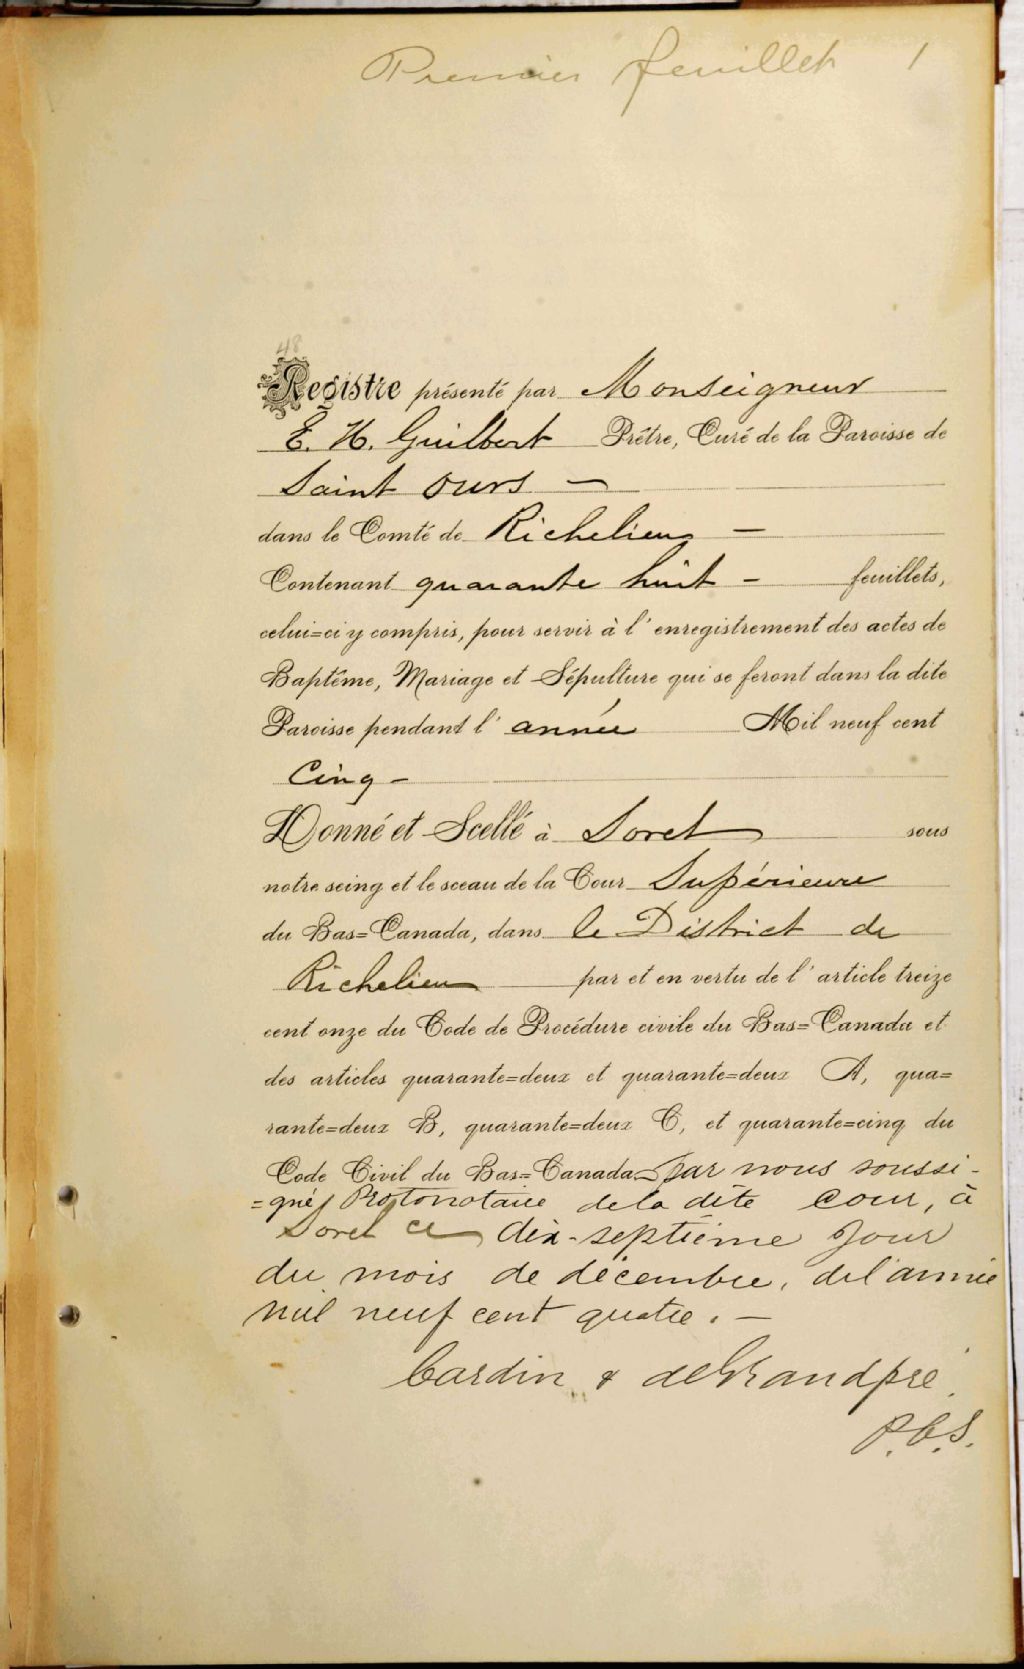 Premier feuillet 1
48
Registre présenté par Monseigneur
E. H. Guilbert Prêtre, Curé de la Paroisse de
Saint Ours —
dans le Comté de Richelieu —
Contenant quarante huit - feuillets,
celui=ci y compris, pour servir à l'enregistrement des actes de
Baptême, Mariage et Sépulture qui se feront dans la dite
Paroisse pendant l'année Mil neuf cent
Cinq -
Donné et Scellé à Sorel sous
notre seing et le sceau de la Cour Supérieure
du Bas=Canada, dans le District de
Richelieu par et en vertu de l'article treize
cent onze du Code de Procédure civile du Bas=Canada et
des articles quarante=deux et quarante=deux A, qua=
rante=deux B, quarante=deux C, et quarante=cinq du
Code Civil du Bas=Canada par nous soussi-
=gné Protonotaire de la dite cour, à
Sorel ce dix-septième jour
du mois de décembre, de l'année
mil neuf cent quatre. —
Cardin & deGrandpré
P.C.S.